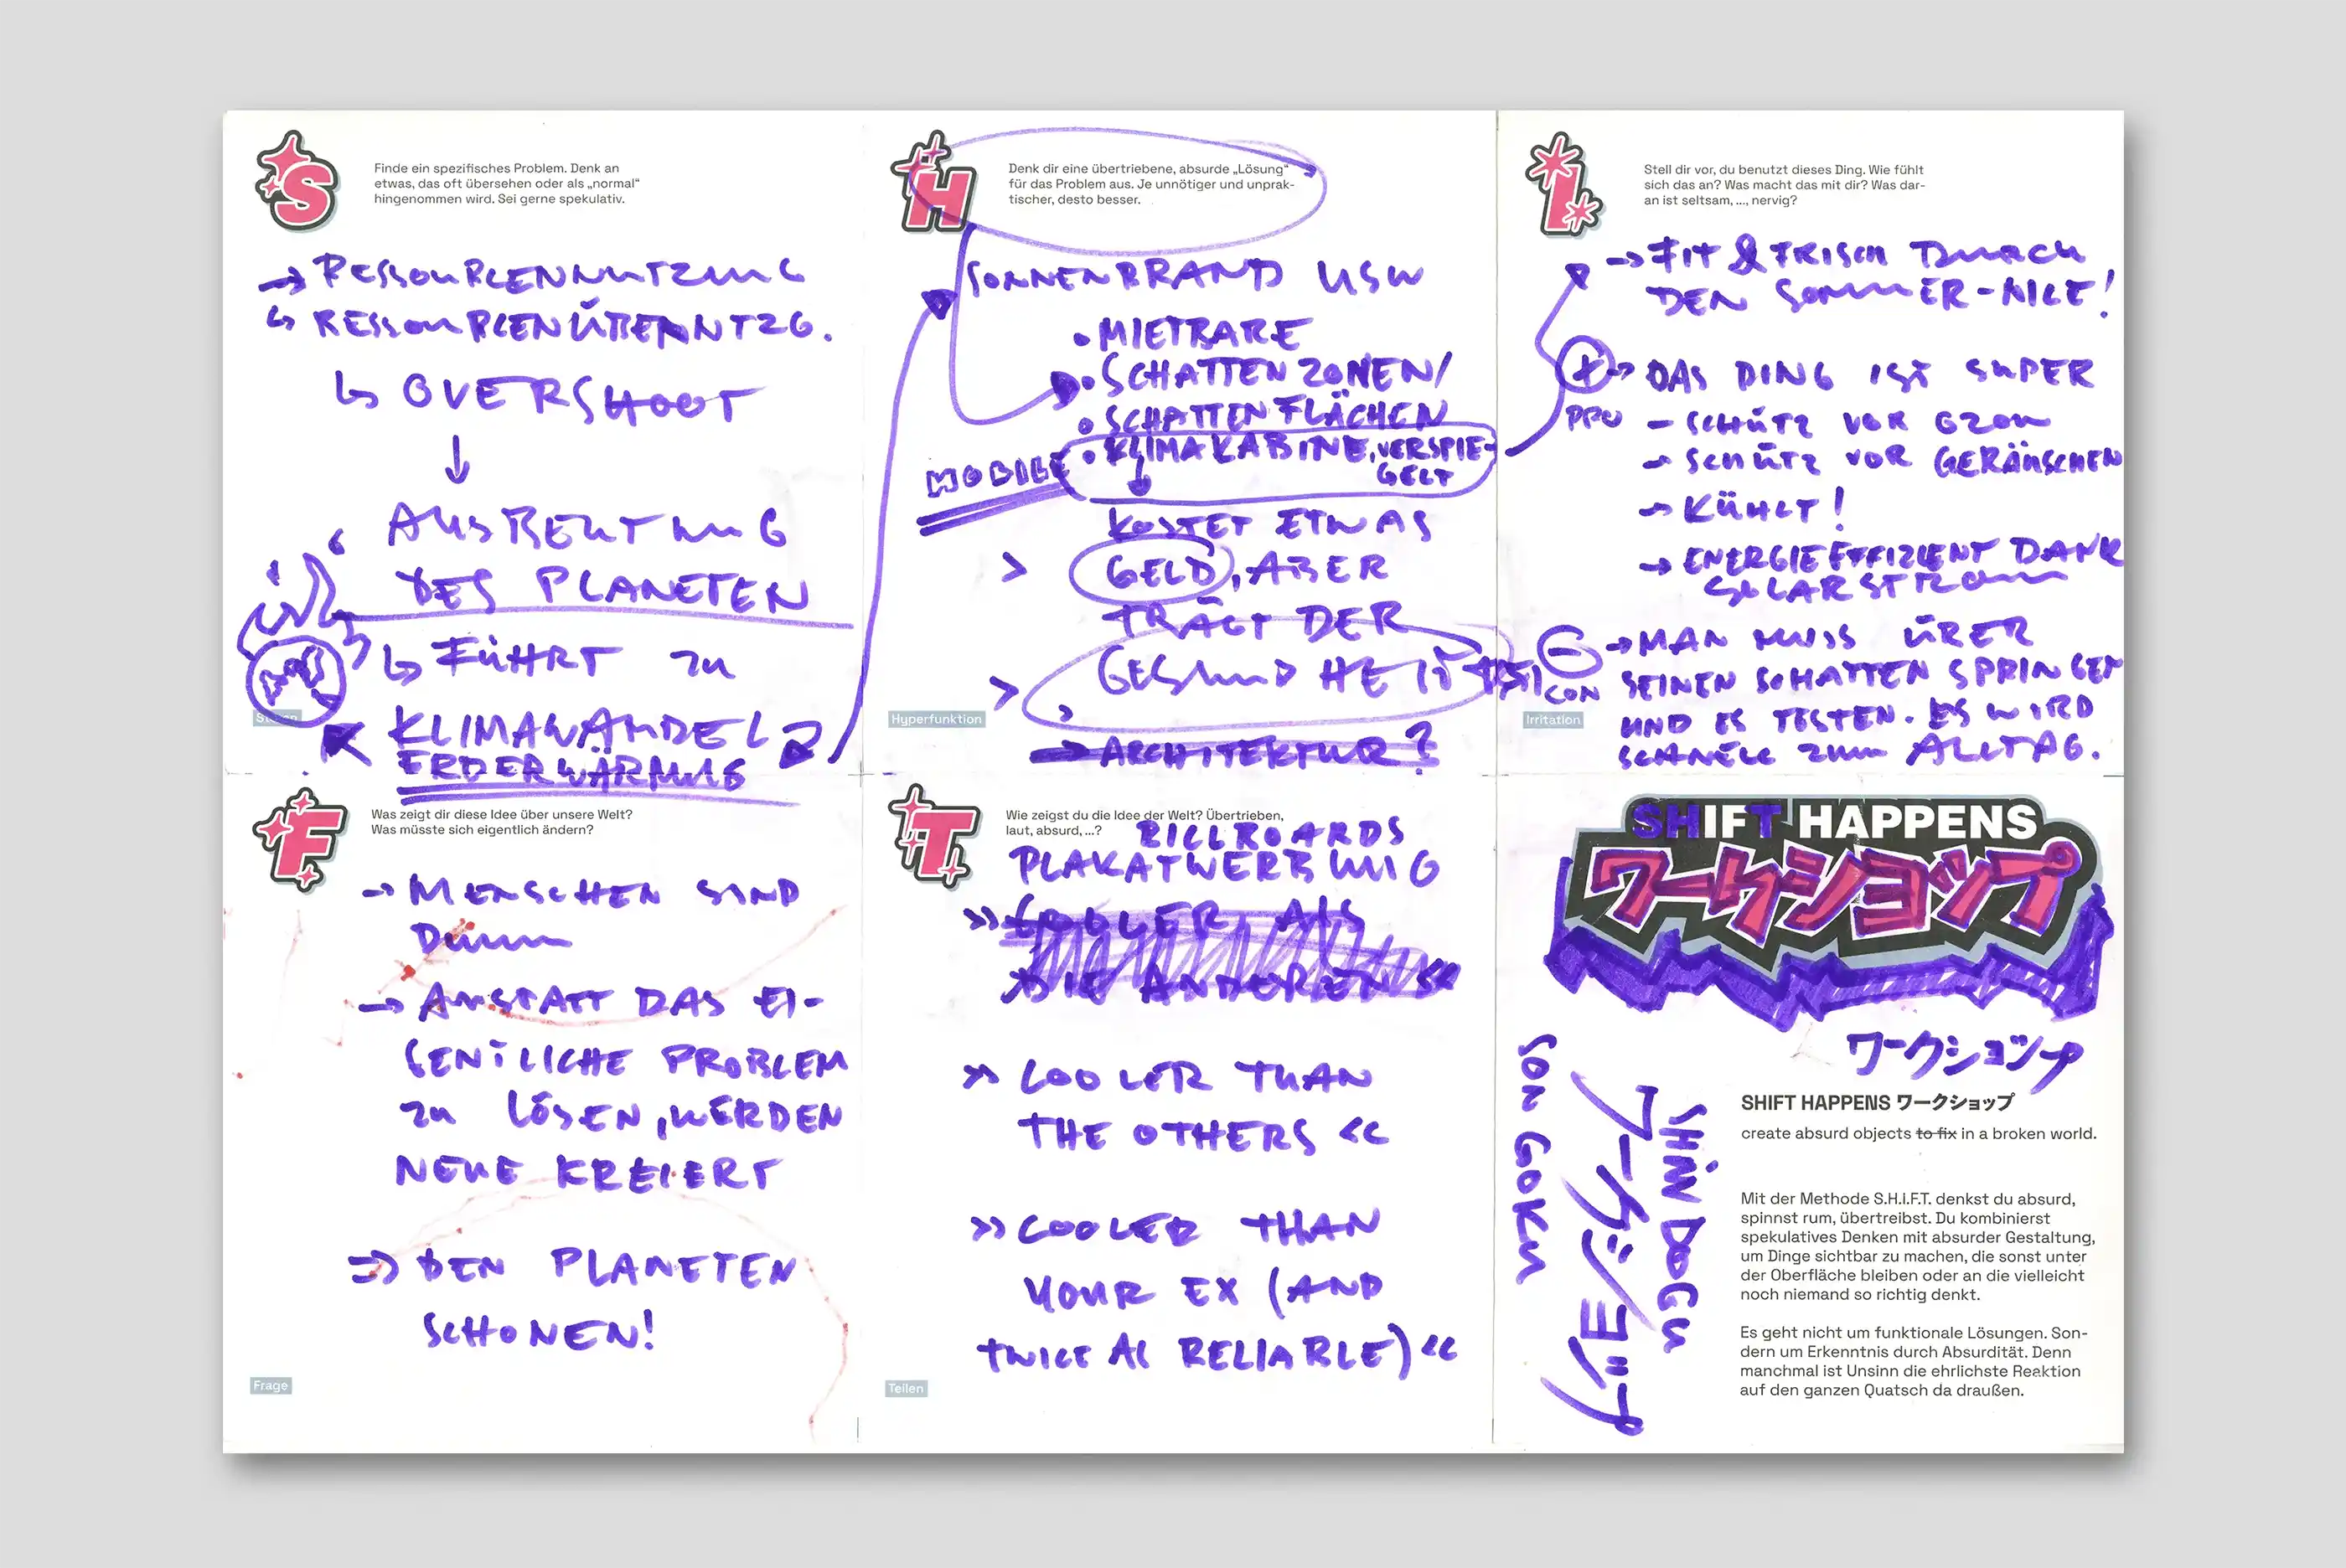 S
Finde ein spezifisches Problem. Denk an
etwas, das oft übersehen oder als „normal“
hingenommen wird. Sei gerne spekulativ.
→ RESSOURCENNUTZUNG
↳ RESSOURCENÜBERNTZG.
↳ OVERSHOOT
↓
AUSBEUTUNG
DES PLANETEN
↳ FÜHRT ZU
KLIMAWANDEL
ERDERWÄRMUNG
H
Denk dir eine übertriebene, absurde „Lösung“
für das Problem aus. Je unnötiger und unprak-
tischer, desto besser.
SONNENBRAND USW
• MIETBARE
• SCHATTENZONEN/
• SCHATTENFLÄCHEN
MOBILE
• KLIMAKABINE, VERSPIE-
GELT
KOSTET ETWAS
> GELD, ABER
TRÄGT DER
> GESUNDHEIT
→ ARCHITEKTUR?
Hyperfunktion
I
Stell dir vor, du benutzt dieses Ding. Wie fühlt
sich das an? Was macht das mit dir? Was dar-
an ist seltsam, ..., nervig?
→ FIT & FRISCH DURCH
DEN SOMMER-
+ → DAS DING IST SUPER
PRO
– SCHÜTZ VOR OZON
→ SCHÜTZ VOR GERÄUSCHEN
→ KÜHLT!
→ ENERGIEEFFIZIENT DANK
SOLARSTROM
– → MAN MUSS ÜBER
CON
SEINEN SCHATTEN SPRINGEN
UND ES TESTEN. ES WIRD
SCHNELL ZUM ALLTAG.
Irritation
F
Was zeigt dir diese Idee über unsere Welt?
Was müsste sich eigentlich ändern?
→ MENSCHEN SIND
DUMM
→ ANSTATT DAS EI-
GENTLICHE PROBLEM
ZU LÖSEN, WERDEN
NEUE KREIERT
⇒ DEN PLANETEN
SCHONEN!
Frage
T
Wie zeigst du die Idee der Welt? Übertrieben,
laut, absurd, ...?
BILLBOARDS
PLAKATWERBUNG
» COOLER ALS
DIE ANDEREN «
» COOLER THAN
THE OTHERS «
» COOLER THAN
YOUR EX (AND
TWICE AS RELIABLE) «
Teilen
SHIFT HAPPENS
ワークショップ
ワークショップ
SON GOKU
ワークショップ
SHIN DOGU
SHIFT HAPPENS ワークショップ
create absurd objects to fix in a broken world.
Mit der Methode S.H.I.F.T. denkst du absurd,
spinnst rum, übertreibst. Du kombinierst
spekulatives Denken mit absurder Gestaltung,
um Dinge sichtbar zu machen, die sonst unter
der Oberfläche bleiben oder an die vielleicht
noch niemand so richtig denkt.
Es geht nicht um funktionale Lösungen. Son-
dern um Erkenntnis durch Absurdität. Denn
manchmal ist Unsinn die ehrlichste Reaktion
auf den ganzen Quatsch da draußen.